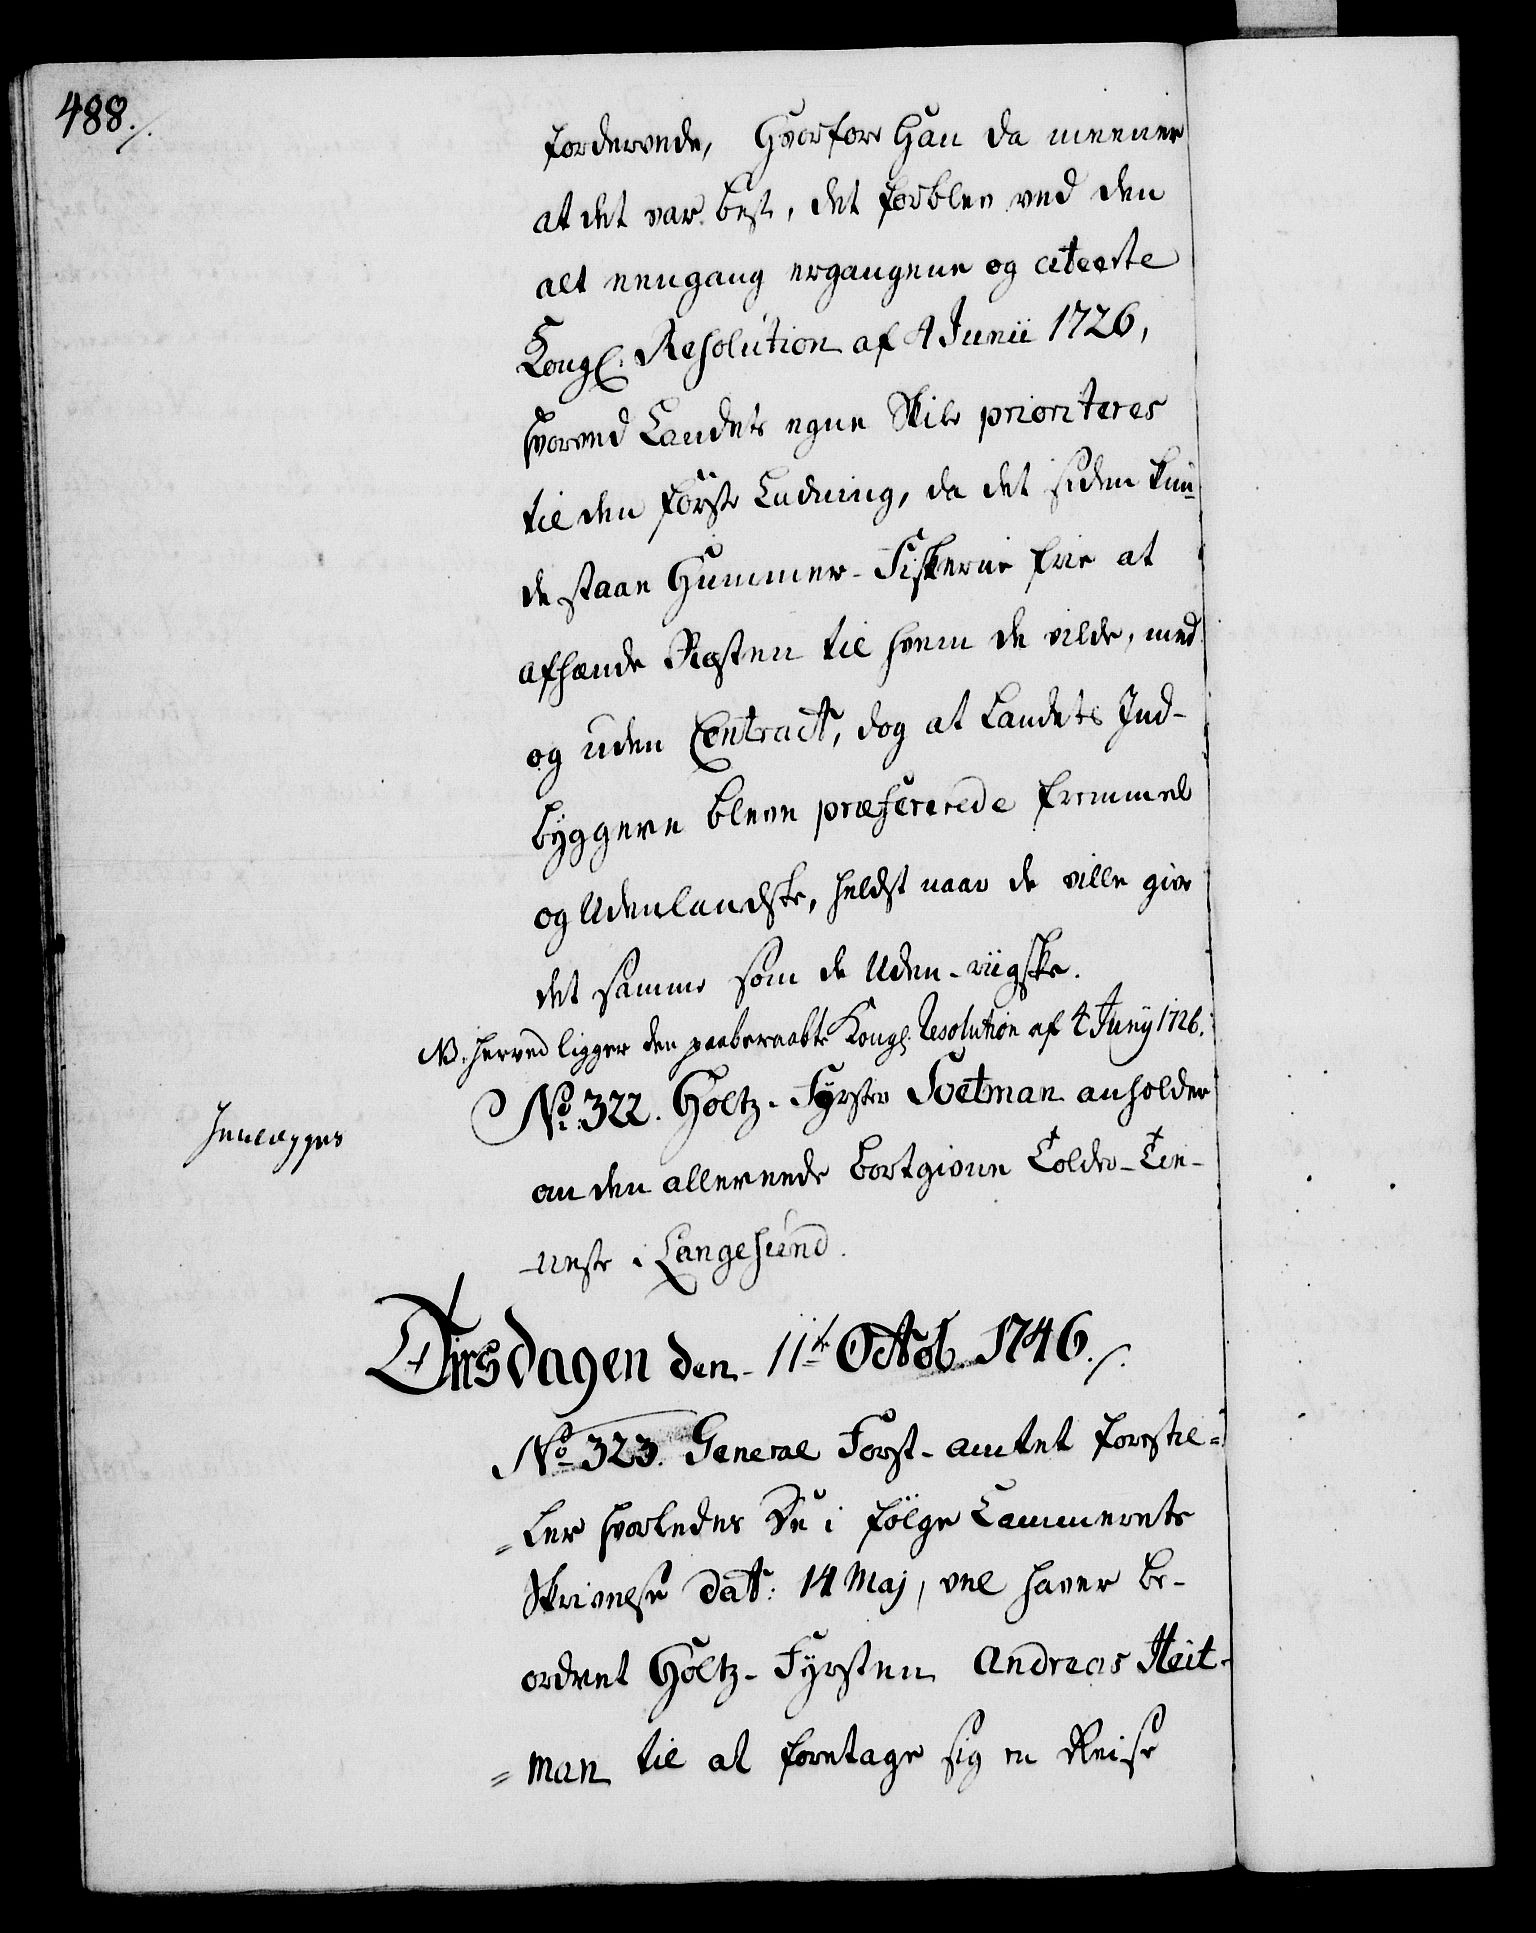 488./.
fordervede, Hvorfore Han da meener
at det var best, det forblev ved den
alt eengang ergangene og citeerte
Kongl: Resolution af 4 Junii 1726,
hvorved Landets egne Skibe prioriteres
til den første Ladning, da det siden kun-
de staae Hummer-Fiskerne frie at
afhænde Resten til hvem de vilde, med
og uden Contract, dog at Landets Ind-
byggere bleve præfererede fremmede
og Udenlandske, heldst naar de ville give
det samme som de Uden-riigske.
NB. herved ligger den paaberaabte Kongl. Resolution af 4 Junij 1726.
Henlægges
No. 322. Holtz-Førster Soetman anholder
om den allereede bortgivne Tolder-Tie-
-neste i Langesund.
Tirsdagen den 11te Octob. 1746./.
No 323. General Forst-amtet forestil=
=ler hvorledes De i følge Cammerets
Skrivelse dat: 14 Maj, vel haver be-
ordret Holtz-Førsteren Andreas Heit-
=man til at foretage sig en Reise